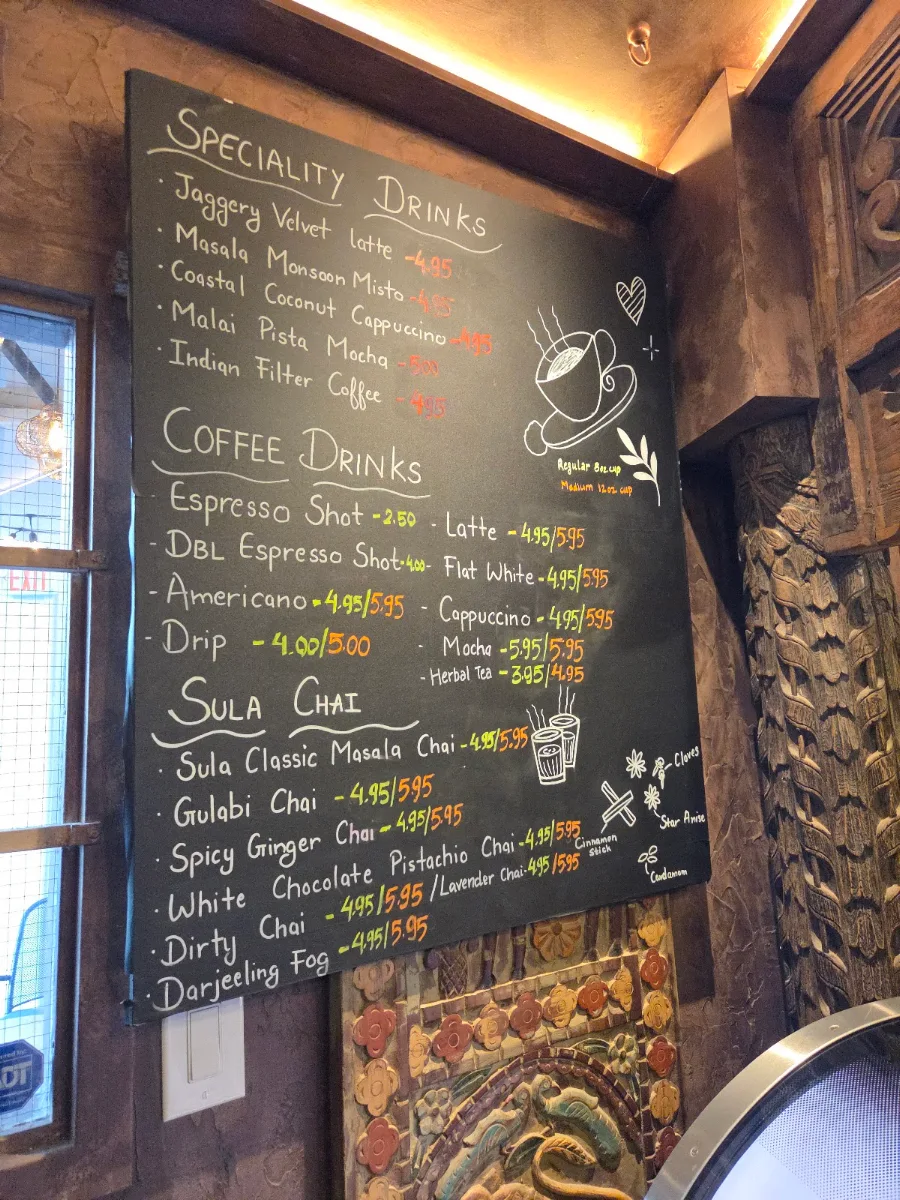 SPECIALITY DRINKS
· Jaggery Velvet latte -4.95
· Masala Monsoon Misto -4.95
· Coastal Coconut Cappuccino -4.95
· Malai Pista Mocha -5.00
· Indian Filter Coffee -4.95
Regular 8oz cup
Medium 12oz cup
COFFEE DRINKS
Espresso Shot -2.50
- DBL Espresso Shot -4.00
- Americano -4.95/5.95
- Drip -4.00/5.00
- Latte -4.95/5.95
- Flat White -4.95/5.95
- Cappuccino -4.95/5.95
- Mocha -5.95/5.95
- Herbal Tea -3.95/4.95
SULA CHAI
· Sula Classic Masala Chai -4.95/5.95
· Gulabi Chai -4.95/5.95
· Spicy Ginger Chai -4.95/5.95
· White Chocolate Pistachio Chai -4.95/5.95
· Dirty Chai -4.95/5.95 /Lavender Chai -4.95/5.95
· Darjeeling Fog -4.95/5.95
Cloves
Star Anise
Cinnamon
Stick
Cardamom
EXIT